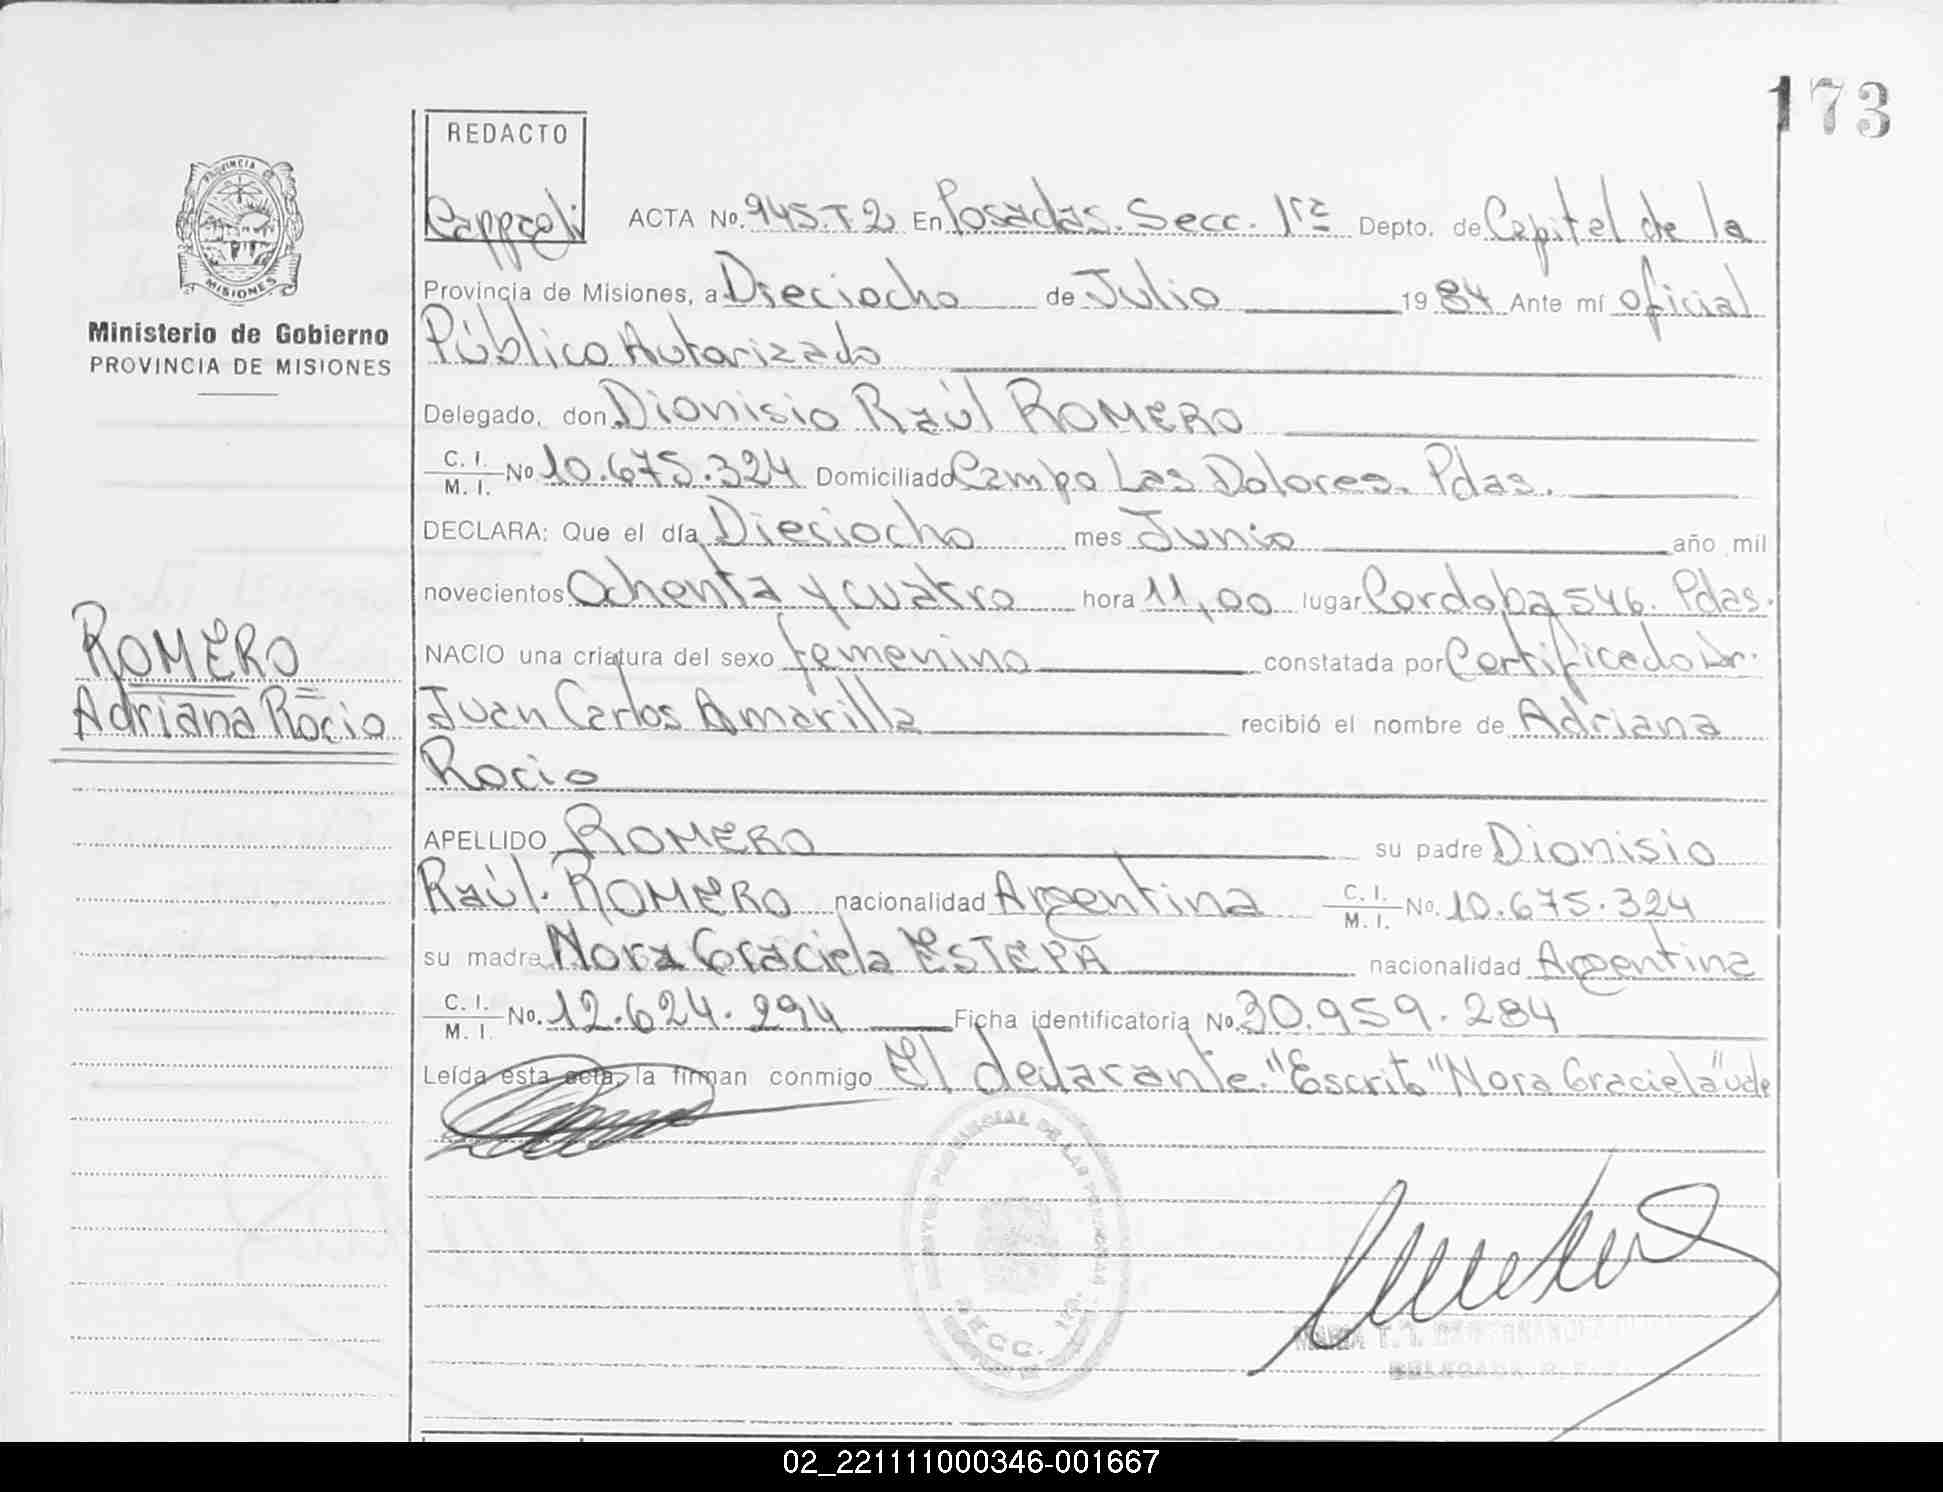 173
REDACTO
Cappoli
PROVINCIA DE
MISIONES
Ministerio de Gobierno
PROVINCIA DE MISIONES
ACTA No. 945.T2 En Posadas. Secc. 1ra Depto. de Capital de la
Provincia de Misiones, a Dieciocho de Julio 1984 Ante mí oficial
Público Autorizado
Delegado, don Dionisio Raúl ROMERO
C. I. / M. I. No 10.675.324 Domiciliado Campo Las Dolores. Pdas.
DECLARA: Que el día Dieciocho mes Junio año mil
novecientos Ochenta y cuatro hora 11,00 lugar Cordoba 546. Pdas.
NACIO una criatura del sexo femenino constatada por Certificado Dr.
Juan Carlos Amarilla recibió el nombre de Adriana
Rocio
ROMERO
Adriana Rocio
APELLIDO ROMERO su padre Dionisio
Raúl. ROMERO nacionalidad Argentina C. I. / M. I. No. 10.675.324
su madre Nora Graciela ESTEPA nacionalidad Argentina
C. I. / M. I. No. 12.624.294 Ficha identificatoria No. 30.959.284
Leída esta acta, la firman conmigo El declarante. "Escrito "Nora Graciela" vale
PROVINCIAL DE LAS PERSONAS
SECC. 1RA.
DELEGADA R.P.P.
02_221111000346-001667